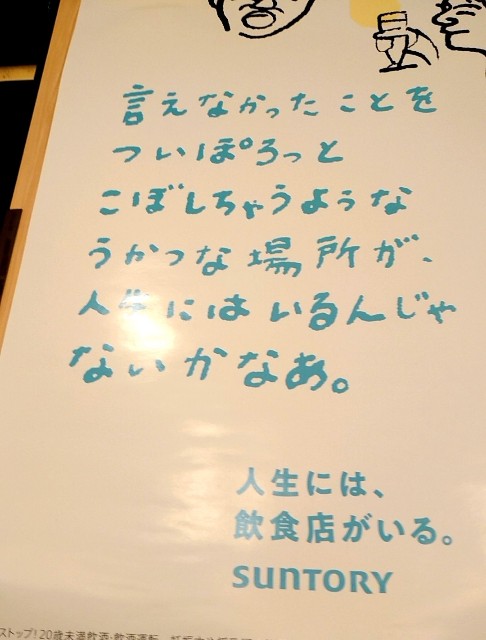 言えなかったことを
ついぽろっと
こぼしちゃうような
うかつな場所が、
人生にはいるんじゃ
ないかなあ。
人生には、
飲食店がいる。
SUNTORY
ストップ!20歳未満飲酒・飲酒運転